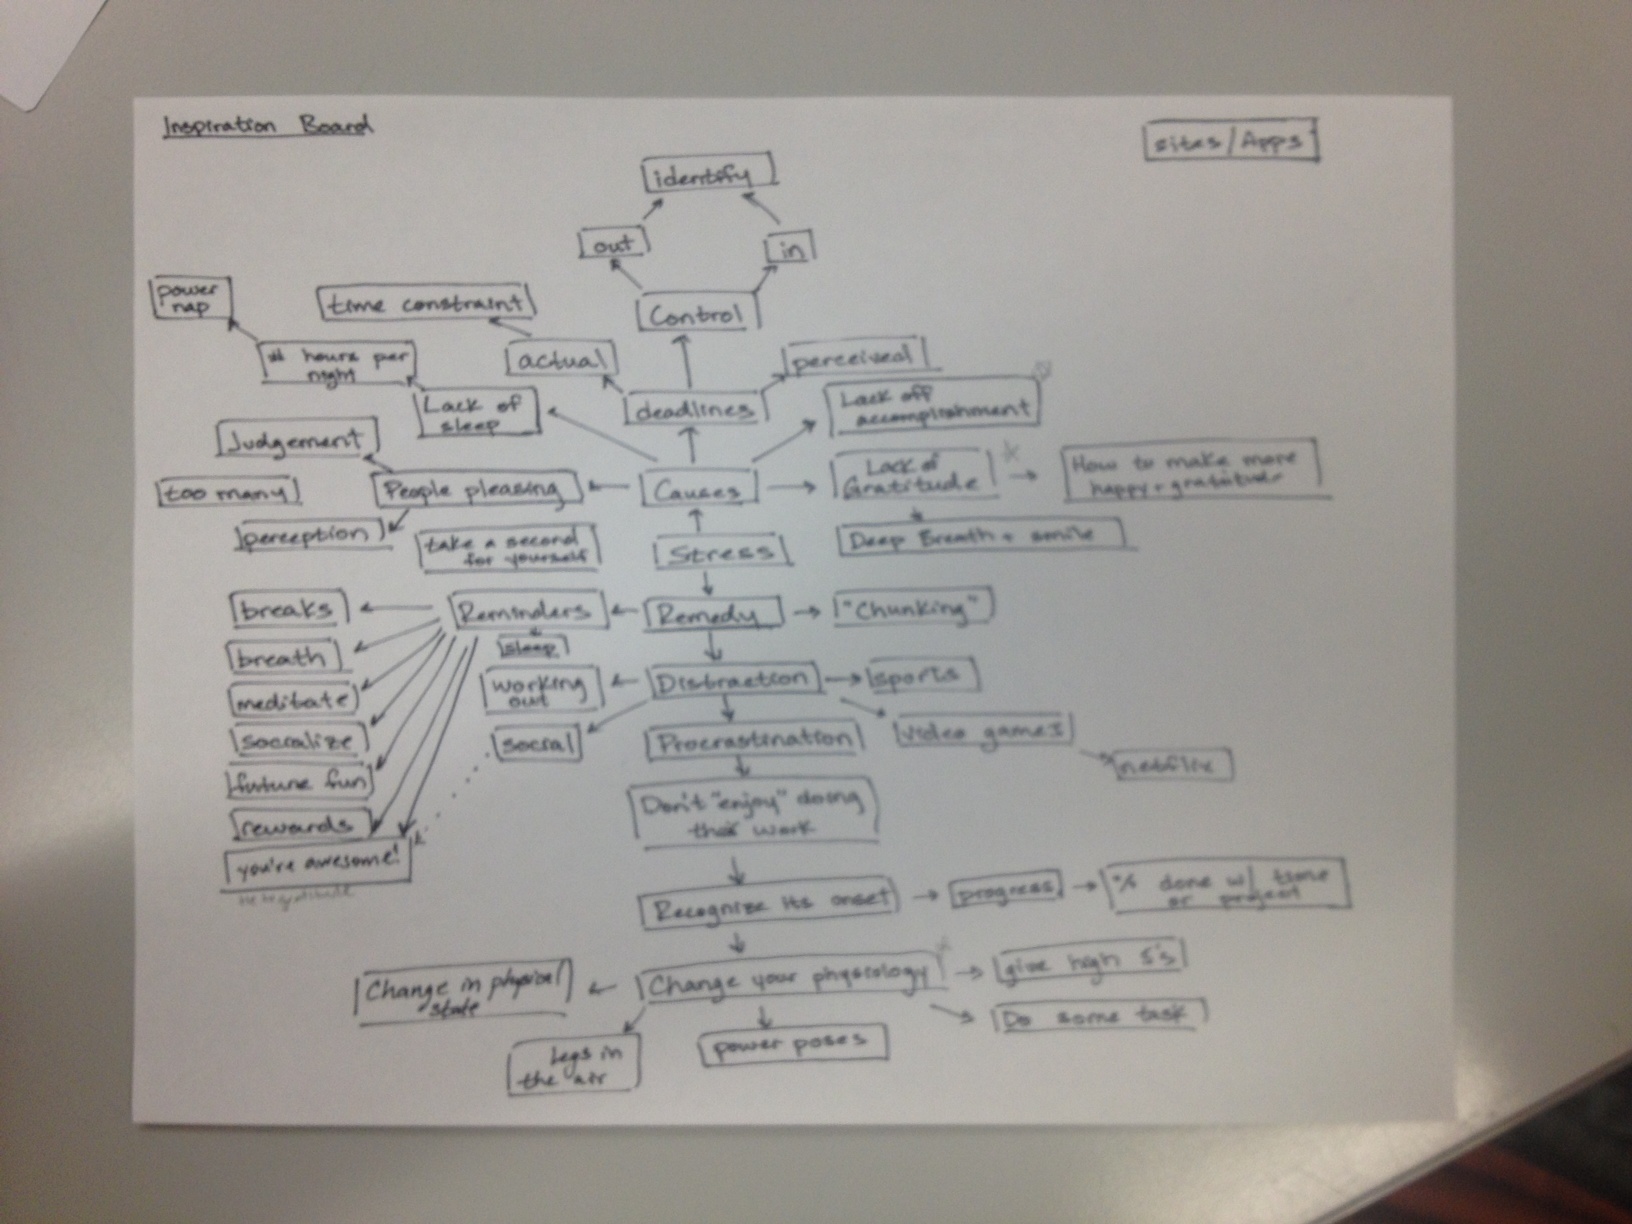 Inspiration Board
Sites/Apps
identify
out
in
Control
power
nap
time constraint
# hours per
night
actual
perceived
Lack of
sleep
deadlines
Lack off
accomplishment
Judgement
too many
People pleasing
Causes
Lack of
Gratitude
How to make more
happy + gratitude
perception
take a second
for yourself
Stress
Deep Breath + smile
breaks
Reminders
Remedy
"Chunking"
sleep
breath
meditate
socialize
future fun
rewards
you're awesome!
working
out
Distraction
sports
social
Procrastination
video games
netflix
Don't "enjoy" doing
work
Recognize its onset
progress
% done w/
or project
Change in physical
state
Change your physiology
give high 5's
Do some task
Legs in
the air
power poses